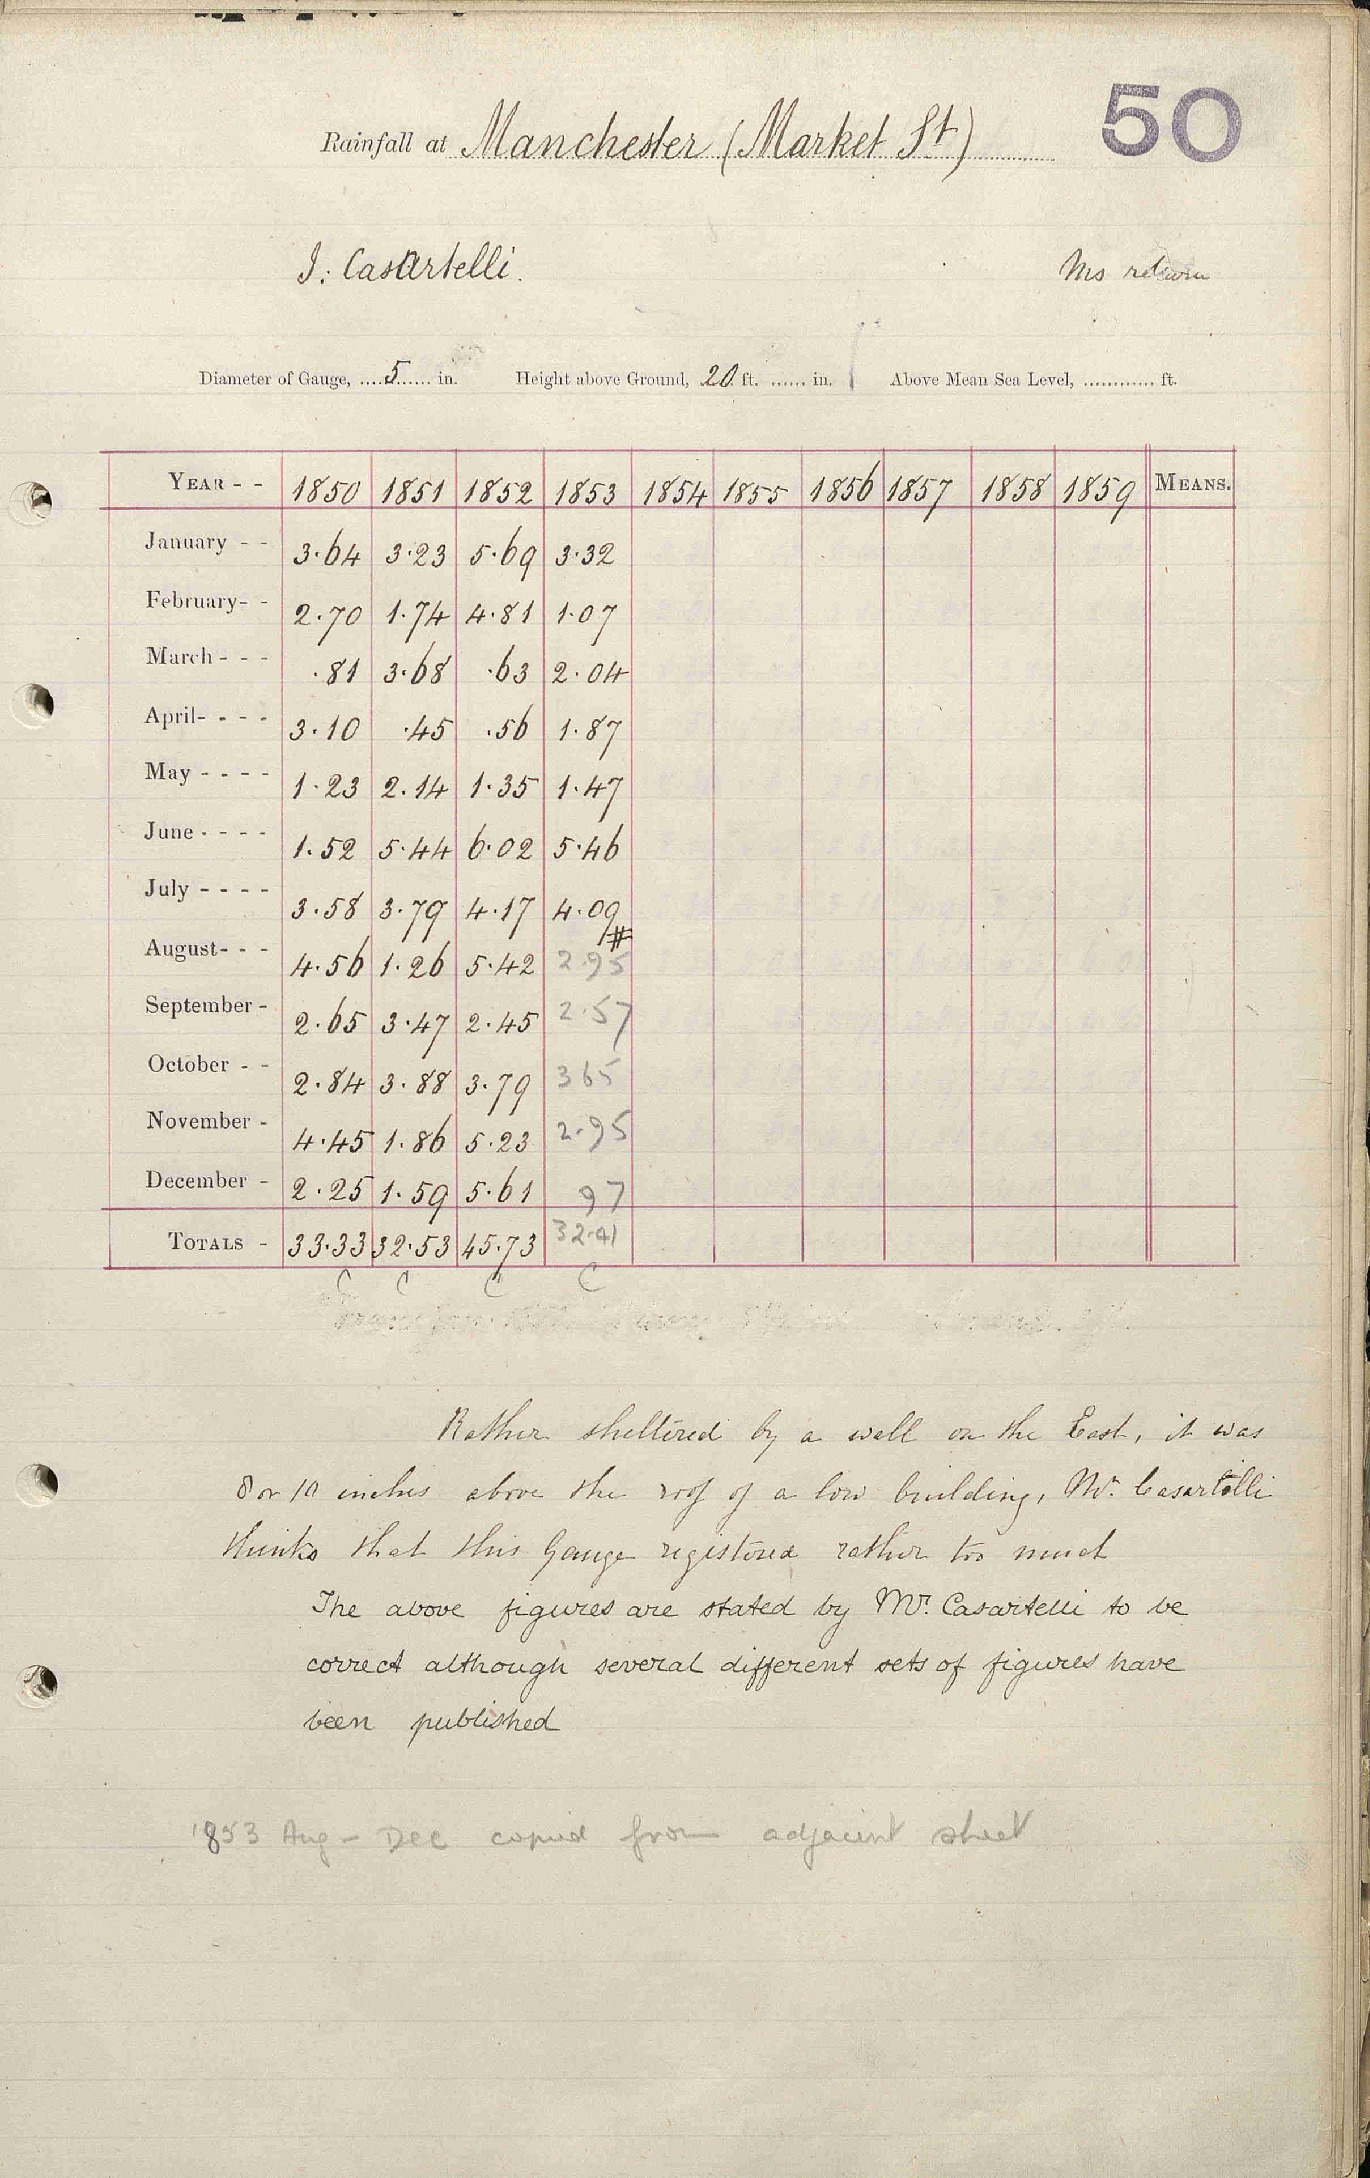 50
Rainfall at Manchester (Market St)
J. Casartelli.
Ms return
Diameter of Gauge, ....5...... in. Height above Ground, 20 ft. ...... in. Above Mean Sea Level, ............ ft.
YEAR - - 1850 1851 1852 1853 1854 1855 1856 1857 1858 1859 MEANS.
January - - 3.64 3.23 5.69 3.32
February- - 2.70 1.74 4.81 1.07
March - - - .81 3.68 .63 2.04
April- - - - 3.10 .45 .56 1.87
May - - - - 1.23 2.14 1.35 1.47
June - - - - 1.52 5.44 6.02 5.46
July - - - - 3.58 3.79 4.17 4.09
#
August- - - 4.56 1.26 5.42 2.95
September - 2.65 3.47 2.45 2.57
October - - 2.84 3.88 3.79 3 65
November - 4.45 1.86 5.23 2.95
December - 2.25 1.59 5.61 97
TOTALS - 33.33 32.53 45.73 32.41
C C C C
Rather sheltered by a wall on the East, it was
8 or 10 inches above the roof of a low building, Mr. Casartelli
thinks that this Gauge registered rather too much
The above figures are stated by Mr. Casartelli to be
correct although several different sets of figures have
been published
1853 Aug - Dec copied from adjacent sheet